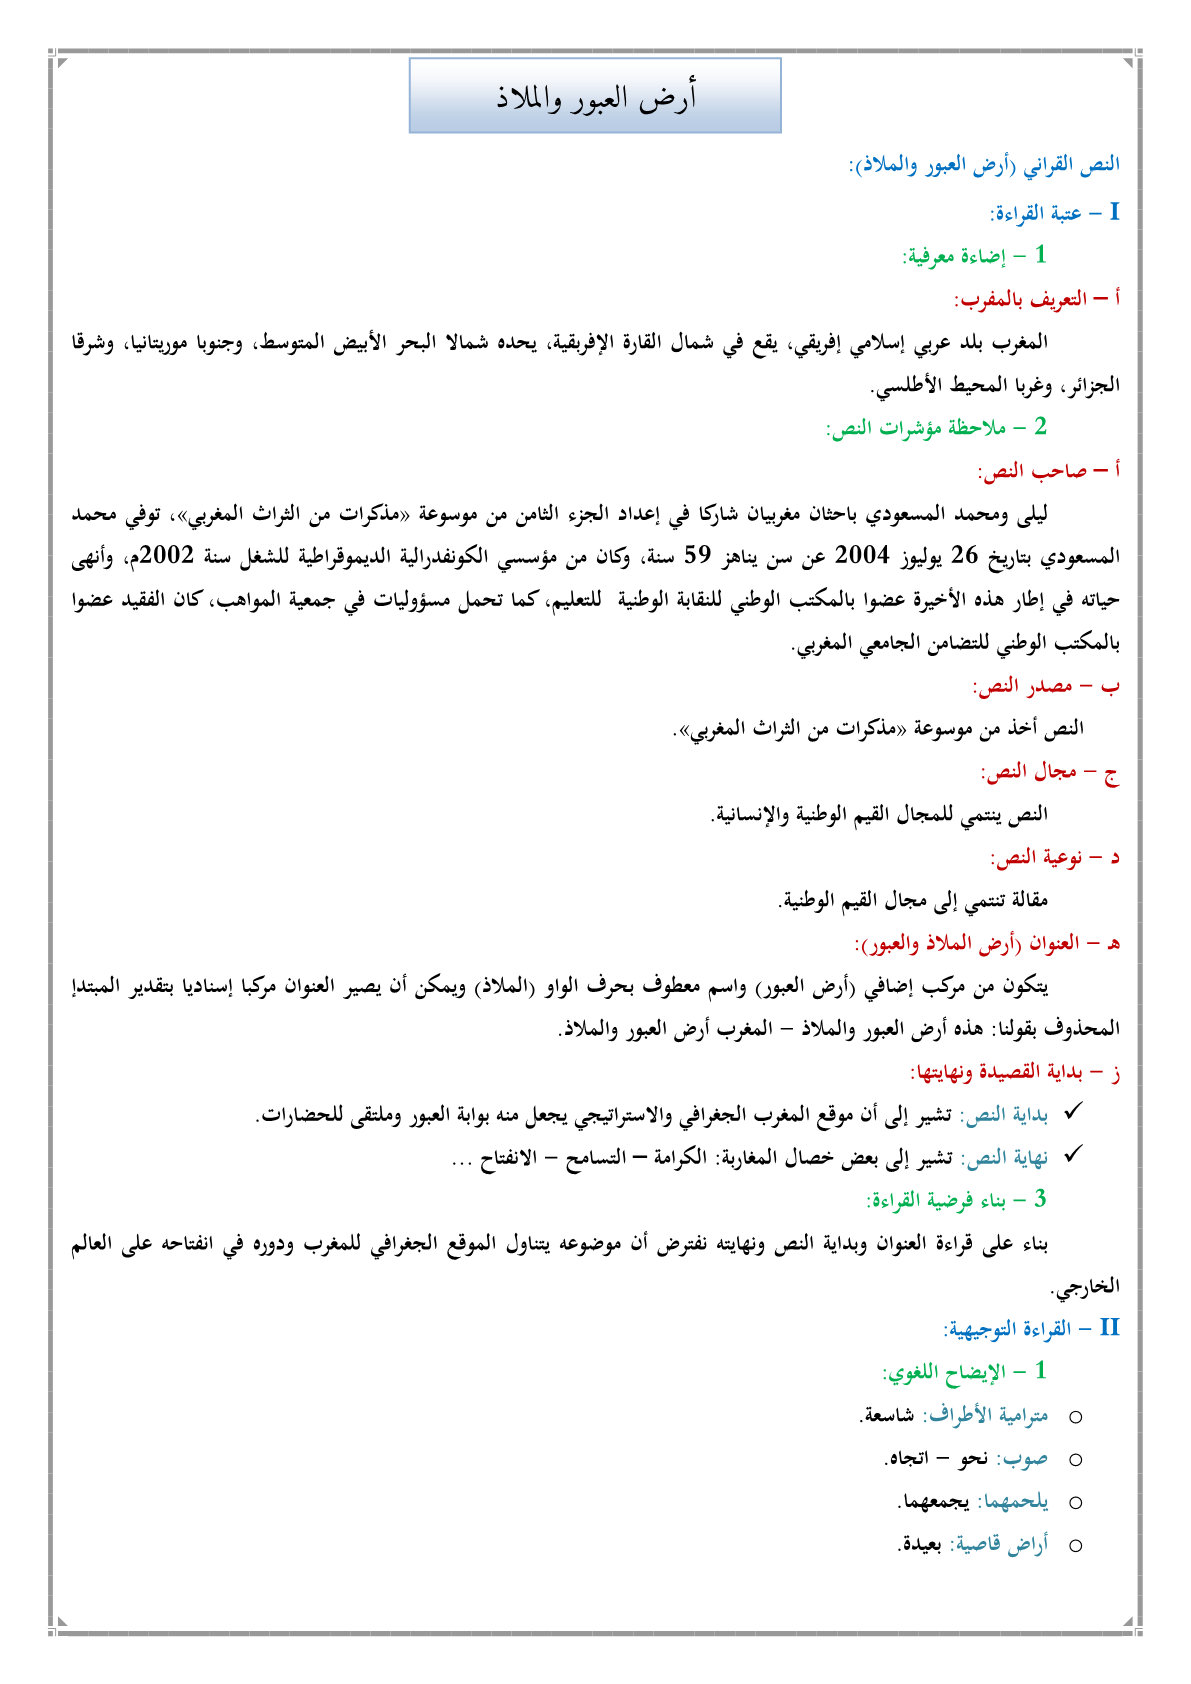 أرض العبور والملاذ
النص القراني (أرض العبور والملاذ):
I – عتبة القراءة:
1 – إضاءة معرفية:
أ – التعريف بالمغرب:
المغرب بلد عربي إسلامي إفريقي، يقع في شمال القارة الإفريقية، يحده شمالا البحر الأبيض المتوسط، وجنوبا موريتانيا، وشرقا
الجزائر، وغربا المحيط الأطلسي.
2 – ملاحظة مؤشرات النص:
أ – صاحب النص:
ليلى ومحمد المسعودي باحثان مغربيان شاركا في إعداد الجزء الثامن من موسوعة «مذكرات من التراث المغربي»، توفي محمد
المسعودي بتاريخ 26 يوليوز 2004 عن سن يناهز 59 سنة، وكان من مؤسسي الكونفدرالية الديموقراطية للشغل سنة 2002م، وأنهى
حياته في إطار هذه الأخيرة عضوا بالمكتب الوطني للنقابة الوطنية للتعليم، كما تحمل مسؤوليات في جمعية المواهب، كان الفقيد عضوا
بالمكتب الوطني للتضامن الجامعي المغربي.
ب – مصدر النص:
النص أخذ من موسوعة «مذكرات من التراث المغربي».
ج – مجال النص:
النص ينتمي للمجال القيم الوطنية والإنسانية.
د – نوعية النص:
مقالة تنتمي إلى مجال القيم الوطنية.
هـ – العنوان (أرض الملاذ والعبور):
يتكون من مركب إضافي (أرض العبور) واسم معطوف بحرف الواو (الملاذ) ويمكن أن يصير العنوان مركبا إسناديا بتقدير المبتدإ
المحذوف بقولنا: هذه أرض العبور والملاذ – المغرب أرض العبور والملاذ.
ز – بداية القصيدة ونهايتها:
✓ بداية النص: تشير إلى أن موقع المغرب الجغرافي والاستراتيجي يجعل منه بوابة العبور وملتقى للحضارات.
✓ نهاية النص: تشير إلى بعض خصال المغاربة: الكرامة – التسامح – الانفتاح ...
3 – بناء فرضية القراءة:
بناء على قراءة العنوان وبداية النص ونهايته نفترض أن موضوعه يتناول الموقع الجغرافي للمغرب ودوره في انفتاحه على العالم
الخارجي.
II – القراءة التوجيهية:
1 – الإيضاح اللغوي:
○ مترامية الأطراف: شاسعة.
○ صوب: نحو – اتجاه.
○ يلحمهما: يجمعهما.
○ أراض قاصية: بعيدة.